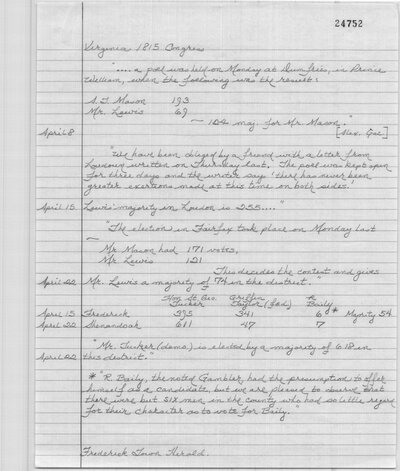 24752
Virginia 1815 Congress
".... a poll was held on Monday at Dumfries, in Prince
William, when the following was the result:
A. T. Mason 193
Mr. Lewis 69
— 124 maj. for Mr. Mason."
April 8 [Alex. Gaz.]
"We have been obliged by a friend with a letter from
Loudoun written on Thursday last. The poll was kept open
for three days and the writer say 'there has never been
greater exertions made at this time on both sides.'
April 15 Lewis' majority in Loudon is 255...."
"The election in Fairfax took place on Monday last
—
Mr. Mason had 171 votes,
Mr. Lewis 121
This decides the contest and gives
April 22 Mr. Lewis a majority of 74 in the district."
Hon. St. Geo. Griffin R
Tucker Taylor (fed.) Baily
April 15 Frederick 395 341 6* Majority 54
April 22 Shenandoah 611 47 7
"Mr. Tucker (demo.) is elected by a majority of 618 in
April 22 this district."
* "R. Baily, the noted Gambler, had the presumption to offer
himself as a candidate, but we are pleased to observe that
there were but six men in the county who had so little regard
for their character as to vote for Baily."
Frederick Town Herald.